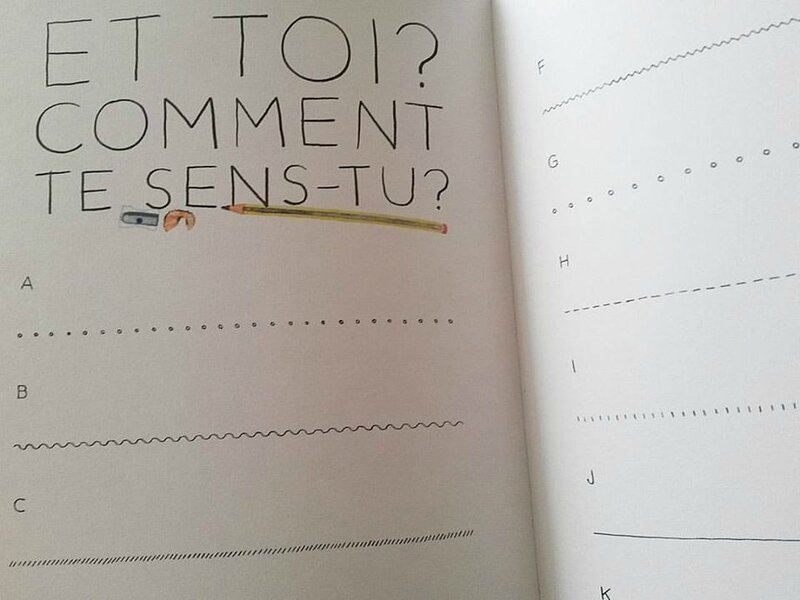 ET TOI?
COMMENT
TE SENS-TU?
A
B
C
F
G
H
I
J
K